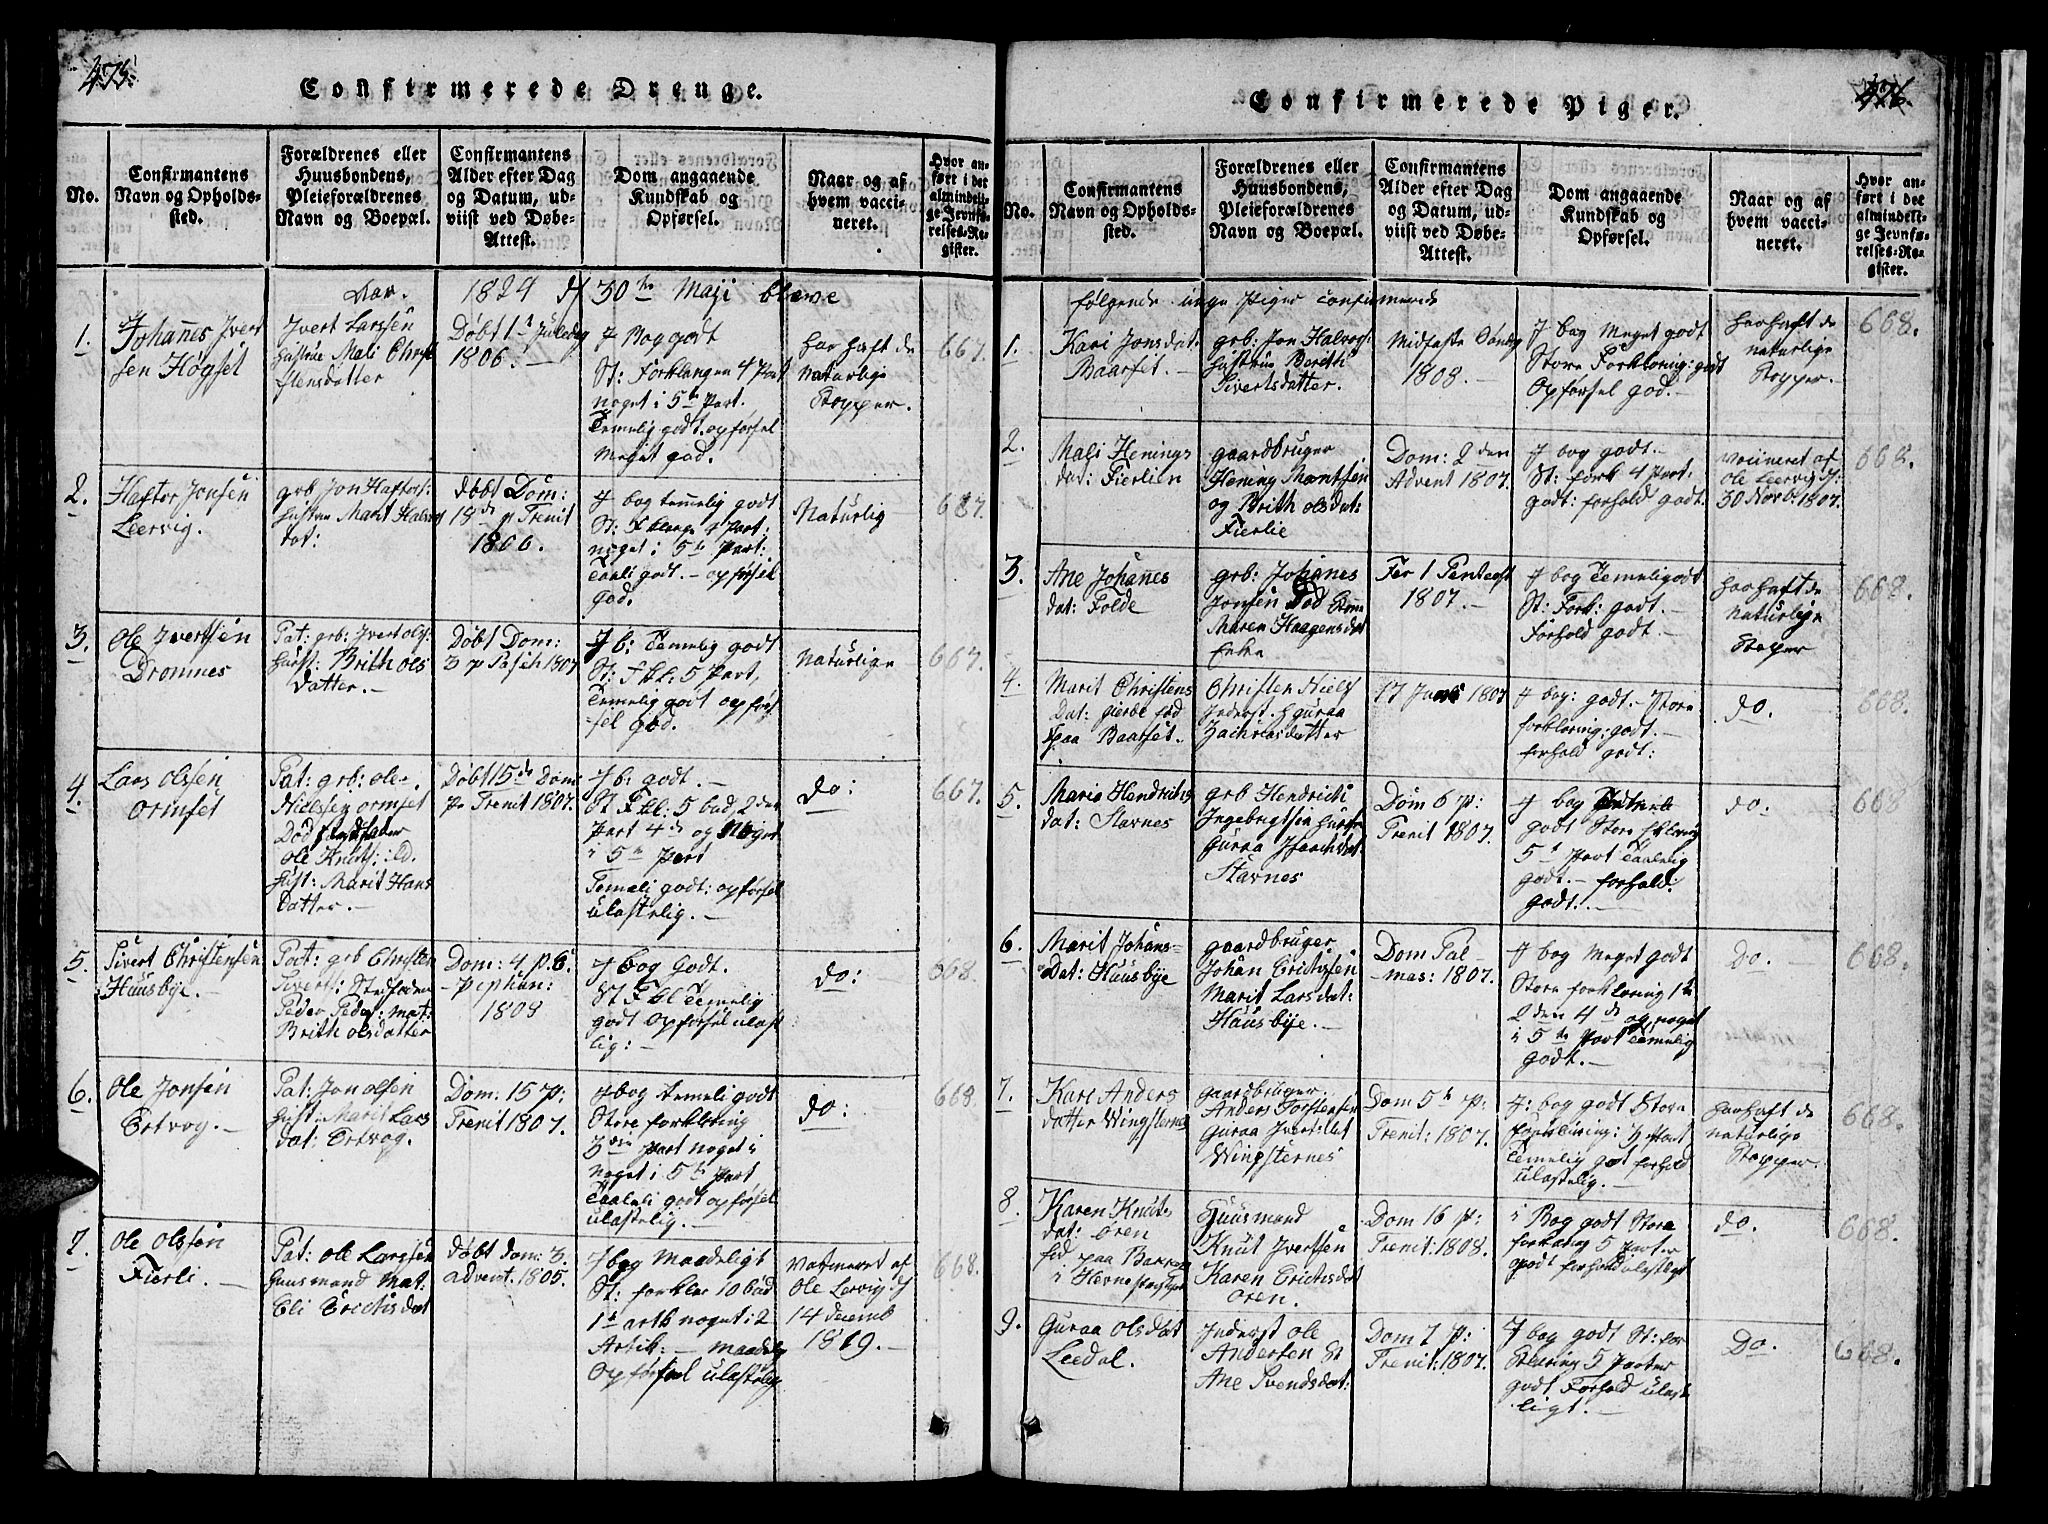 475.
Confirmerede Drenge.
No.
Confirmantens
Navn og Opholds-
sted.
Forældrenes eller
Huusbondens,
Pleieforældrenes
Navn og Boepæl.
Confirmantens
Alder efter Dag
og Datum, ud-
viist ved Døbe-
Attest.
Dom angaaende
Kundskab og
Opførsel.
Naar og af
hvem vacci-
neret.
Hvor an-
ført i det
almindeli-
ge Jevnfø-
relses-Re-
gister.
Aar.
1824 d 30te Maji blewe
1.
Johannes Ivert
sen Høgset
Ivert Larssen
hustrue Mali Christ
ofersdatter
Døbt 1t Juledag
1806. —
J Bog godt
St: Forklargen 4 Part
noget i 5te Part.
Temelig godt. opførsel
Meget god.
har haft de
Naturlige
Kopper.
667.
2.
Haftor Jonsen
Leervig.
grb Jon Haftors:
hustru Marit Halvor
dat:
døbt Dom:
18de p Trenit
1806.
J bog temmelig godt
St: Fklarg 4 Part:
noget i 5te Part:
Taali godt. — opførsel
god.
Naturlig
667.
3.
Ole Ivertsen
Dromnes
Pat: grb: Ivert ols:
hust: Brith ols
datter. —
Døbt Dom:
3 p Pasch 1807
J b: Temelig godt
St: fkl: 5 Part,
Temelig godt opfør
sel god.
Naturlige
667.
4.
Lars Olssen
Ormset
Pat: grb: ole
Nielssen ormset
Død stedfader
Ole Knuts: ibd.
hust: Marit Hans
Datter. —
Døbt 15de Dom:
p Trenit 1807.
J b: godt. —
St Fkl: 5 bud 2den
Part 4de og Noget
i 5te Part
Temeli godt: opførsel
ulastelig. —
do:
667.
5.
Sivert Christensen
Huusbye.
Pat: grb Christen
Sivers: Stedfader
Peder Peders: mat:
Brith olsdatter
Dom: 4 p. E.
piphan:
1808
J bog Godt.
St Fkl Temelig
godt Opførsel ulast
lig: —
do:
668.
6.
Ole Jonsen
Ertvog. —
Pat: Jon olsen
hust: Marit Lars
dat: Ertvog.
Dom: 15 p:
Trenit 1807.
J bog temeli godt
Store forklering
3die Part noget i
noget i 5te Part
Taaleli godt opførsel
ulastelig. —
do:
668.
7.
Ole olssen
Fierli. —
Pat: ole Larssen
huusmand Mat:
Eli Erichsdat
døbt dom: 3.
advent. 1805.
J bog Maadeligt
St: forklar 10 bud
1te artk noget i 2
Artik: — maadelig
Opførsel ulastelig
Vatineret af
Ole Lervig d
14 decemb
1819. —
668.
476.
Confirmerede Piger.
No.
Confirmantens
Navn og Opholds-
sted.
Forældrenes eller
Huusbondens,
Pleieforældrenes
Navn og Boepæl.
Confirmantens
Alder efter Dag
og Datum, ud-
viist ved Døbe-
Attest.
Dom angaaende
Kundskab og
Opførsel.
Naar og af
hvem vacci-
neret.
Hvor an-
ført i det
almindeli-
ge Jevnfø-
relses-Re-
gister.
følgende unge Piger confirmerede
1.
Kari Jonsdat.
Baarset. —
grb: Jon Halvors:
hustrue Berith
Sivertsdatter.
Midfaste Søndag
1808. —
J bog Meget godt
Store Forkloring: godt
Opførsel god. —
har haft de
naturlige
Kopper. —
668.
2.
Mali Henings
dat: Fierlien
gaardbruger
Hening Montsen
og Brith olsdat:
Fierlie
Dom: 2 den
Advent 1807.
J bog godt. —
St: fork 4 Part:
godt: forhold godt.
vaccineret af
ole Leervig d:
30 Novb 1807.
668.
3.
Ane Johannes
dat: Folde
grb: Johanes
Jonsen Død
Maren Haagensdat
Enke
Fer 1 Pentecost
1807. —
J bog Temeli godt
St: Fork: godt.
Forhold godt. —
har haft de
naturlige
Kopper
668.
4.
Marit Christens
Dat: gierde fød
paa Baarset.
Christen Niels
Inderst. h guraa
Zachriasdatter
17 Juni 1807
J bog: godt. — Store
forkloring: godt. —
forhold godt:
do.
668.
5.
Maria Hendrichs
dat: Stavnes
grb Hendrich
Ingebrigtsen hustru
Guraa Isaachsdat:
Stavnes
Dom 6 p:
Trenit 1807.
J bog
godt Store fklering
5t Part Taalelig
godt. — forhold:
godt. —
do.
668
6.
Marit Johans-
Dat: Huusbye
gaardbruger
Johan Erichssen
Marit Larsdat:
Huusbye. —
Dom Pal-
mar: 1807.
J bog Meget godt
Store forklering 1te
2den 4de og noget
i 5te Part Temelig
godt. —
Do.
668.
7.
Kari Anders
datter Wingsternes
gaardbruger
Anders Torstensen
Guraa Ivertsdat
Wingsternes
Dom 5te p:
Trenit: 1807.
J: bog godt Store
forklering: 3 Part
Temelig godt forhold
ulastelig. —
har haft de
naturlige
Kopper.
668.
8.
Karen Knuts
dat: ören
fød paa Bakken
i Hevne Præstgield
Huusmand
Knut Ivertsen
Karen Erichsdat
ören.
Dom 16 p:
Trenit: 1808.
i Bog godt Store
forklaring 5 parter
godt forhold ulasteligt
do.
668.
9.
Guraa olsdat
Leedal.
Inderst ole
Andersen &
Ane Svendsdat:
Dom 7 p:
Trenit: 1807.
J bog godt St: for
klering 5 parter
godt Forhold ulast
ligt. —
Do.
668.